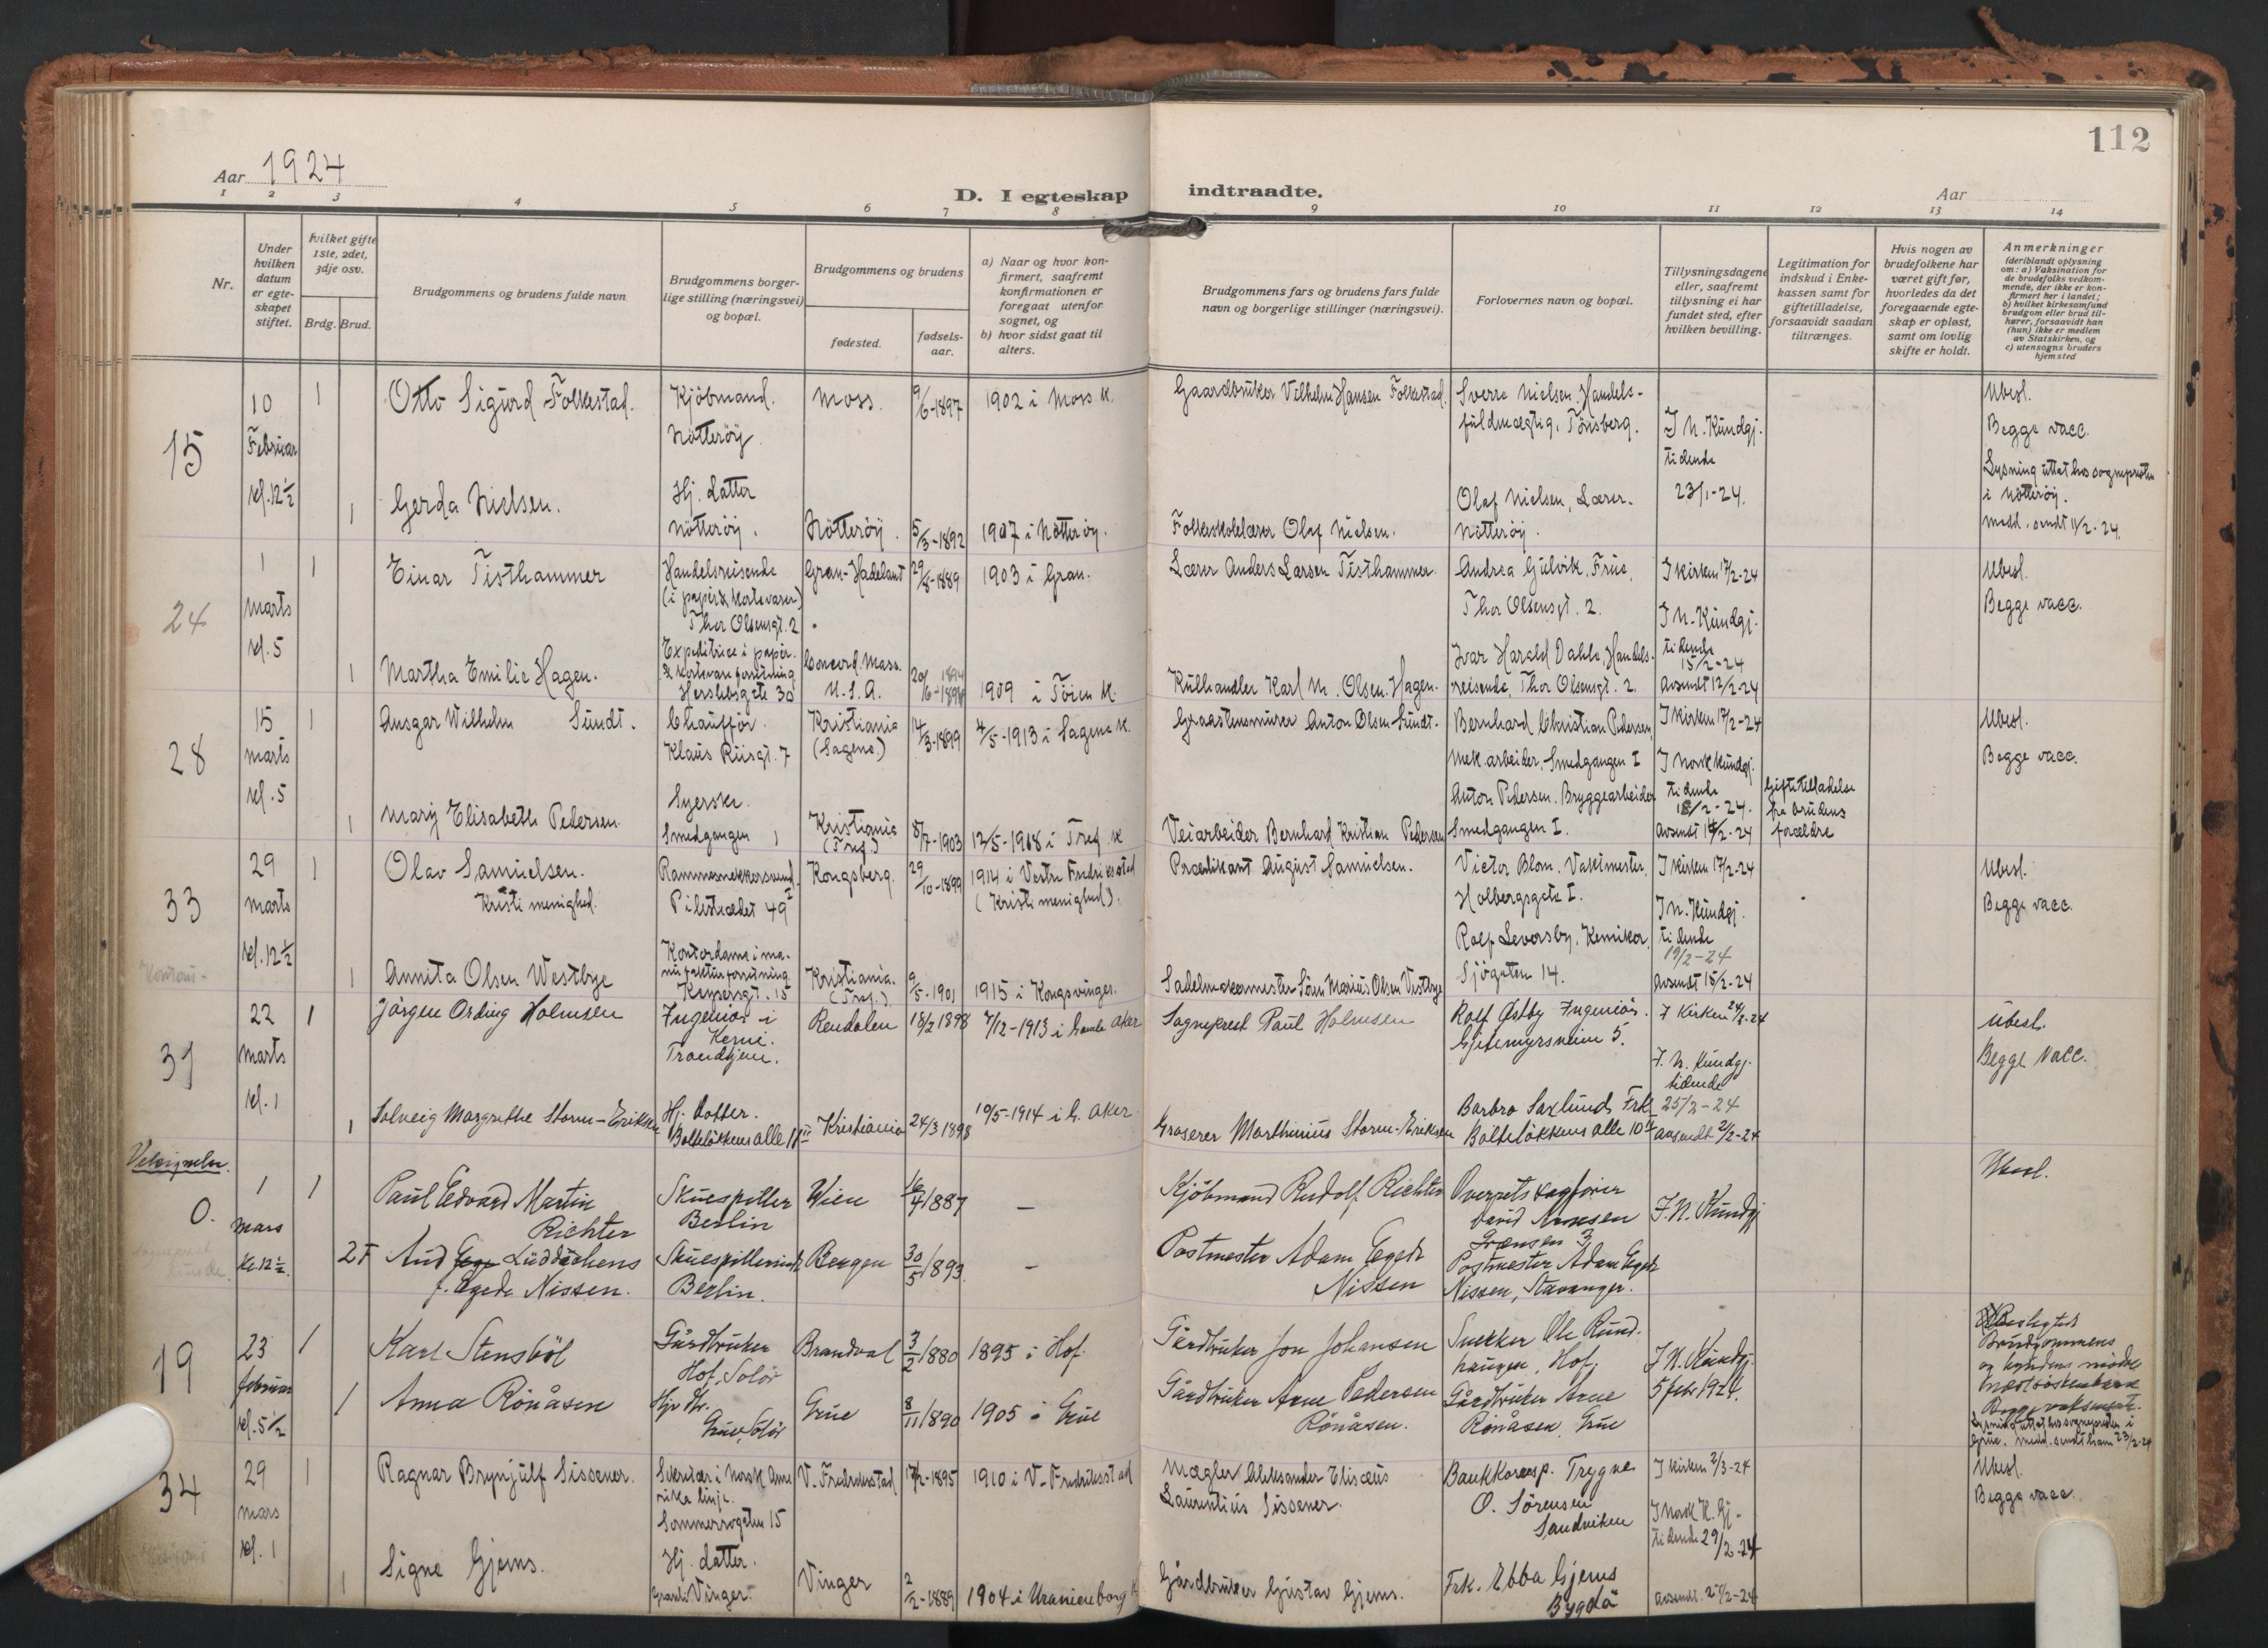 112
Aar 1924
D. I egteskap indtraadte.
Aar
1 2 3 4 5 6 7 8 9 10 11 12 13 14
Nr.
Under hvilken datum er egte-skapet stiftet.
Hvilket gifte 1ste, 2det, 3dje osv.
Brdg. Brud.
Brudgommens og brudens fulde navn
Brudgommens borger-lige stilling (næringsvei) og bopæl.
Brudgommens og brudens
fødested.
fødsels-aar.
a) Naar og hvor kon-firmert, saafremt konfirmationen er foregaat utenfor sognet, og
b) hvor sidst gaat til alters.
Brudgommens fars og brudens fars fulde navn og borgerlige stillinger (næringsvei).
Forlovernes navn og bopæl.
Tillysningsdagene eller, saafremt tillysning ei har fundet sted, efter hvilken bevilling.
Legitimation for indskud i Enke-kassen samt for giftetilladelse, forsaavidt saadan tiltrænges.
Hvis nogen av brudefolkene har været gift før, hvorledes da det foregaaende egte-skap er opløst, samt om lovlig skifte er holdt.
Anmerkninger (deriblandt oplysning om: a) Vaksination for de brudefolks vedkom-mende, der ikke er kon-firmert her i landet; b) hvilket kirkesamfund brudgom eller brud til-hører, forsaavidt han (hun) ikke er medlem av Statskirken, og c) utensogns bruders hjemsted
15
10 Februar kl. 12½
1
Otto Sigurd Folkestad.
Kjöbmand. Nötteröy.
Moss.
9/6-1897
1902 i Moss K.
Gaardbruker Vilhelm Hansen Folkestad.
Sverre Nielsen. Handels-fuldmægtig, Tönsberg.
I N. Kundgj. tidende 23/1-24.
Ubesl.
Begge vacc.
Lysning uttat hos sogneprsten i Nötteröy.
Medd. sendt 11/2-24.
1
Gerda Nielsen.
Hj. datter Nötteröy.
Nötteröy.
5/3-1892
1907 i Nötteröy.
Folkeskolelærer Olaf Nielsen.
Olaf Nielsen, Lærer. Nötteröy.
24
1 marts kl. 5
1
Einar Tisthammer
Handelsreisende (i papir & kortevarer) Thor Olsensgt. 2
Gran-Hadeland
29/8-1889
1903 i Gran.
Lærer Anders Larsen Tisthammer.
Andrea Gulvik, Frue, Thor Olsensgt. 2.
I kirken 17/2-24
I N. Kundgj. tidende 15/2-24
Avsendt 12/2-24
Ubesl.
Begge vacc.
1
Martha Emilie Hagen.
Expeditrice i papir. & kortevareforretning Herslebsgate 30
Concord. Mass. U.S.A.
20/6-1894
1909 i Töien K.
Kulhandler Karl M. Olsen Hagen.
Ivar Harald Dahle, Handels-reisende, Thor Olsensgt. 2.
28
15 marts kl. 5
1
Ansgar Wilhelm Sundt.
Chaufför. Klaus Riisgt. 7
Kristiania (Sagene.)
14/3-1899
4/5-1913 i Sagene K.
Graastensmurer Anton Olsen Sundt.
Bernhard Christian Pedersen, Mek. arbeider, Smedgangen I
I kirken 17/2-24
I Norsk Kundgj. tidende 18/2-24.
Avsendt 14/2-24
Giftetilladelse fra brudens forældre
Ubesl.
Begge vacc.
1
Mary Elisabeth Pedersen.
Syerske. Smedgangen 1
Kristiania (Tref.)
8/7-1903
12/5-1918 i Tref. K
Veiarbeider Bernhard Kristian Pedersen
Anton Pedersen. Bryggearbeider Smedgangen I.
33
29 marts kl. 12½
1
Olav Samuelsen.
Kristi menighed.
Rammesnekkersvend. Pilestrædet 49
Kongsberg.
29/10-1899
1914 i Vestre Fredriksstad (Kristi menighed).
Prædikant August Samuelsen.
Victor Blom. Vaktmester, Holbergsgate I.
I kirken 17/2-24
I N. Kundgj. tidende 19/2-24
Avsendt 15/2-24
Ubesl.
Begge vacc.
1
Annita Olsen Westbye
Kontordame i ma-nufakturforretning. Keysersgt. 15
Kristiania. (Tref.)
9/5-1901
1915 i Kongsvinger.
Sadelmakermester Sören Marius Olsen Vestbye
Rolf Leversby, Kemiker, Sjögaten 14.
31
22 marts kl. 1
1
Jörgen Ording Holmsen
Ingeniör i Kemi. Trondhjem.
Rendalen
18/2 1898
7/12-1913 i Gamle Aker
Sogneprest Paul Holmsen
Rolf Østby Ingeniör. Gjetemyrsveien 5.
I Kirken 24/2-24
I. N. Kundgj. tidende 25/2-24
avsendt 21/2-24
Ubesl.
Begge vacc.
1
Solveig Margrethe Storm-Eriksen
Hj. Datter. Bolteløkkens alle 11
Kristiania
24/3 1898
10/5-1914 i G. Aker.
Groserer Marthinius Storm-Eriksen
Barbro Saxlund Frk. Bolteløkkens alle 10
Velsignelse.
0.
1 mars Kl. 12½
1
Paul Edvard Martin Richter
Skuespiller Berlin
Wien
16/4/1887
—
Kjöbmand Rudolf Richter
Overretssagförer David Arnesen Grænsen 3
I. N. Kundgj
Ubesl.
2 F
Aud Lüddechens f. Egede Nissen.
Skuespillerinde Berlin.
Bergen
30/5/1893
—
Postmester Adam Egede Nissen
Postmester Adam Egede Nissen, Stavanger.
19
23 februar kl. 5½
1
Karl Stensböl
Gårdbruker Hof, Solör
Brandval
3/2/1880
1895 i Hof.
Gårdbruker Jon Johansen
Snekker Ole Rund-haugen, Hof,
I N. Kundgj. 5 febr 1924.
Beslegted
Brudgommens og brudens mödre
Lysning uttat hos sognepresten i Grue. Medd. sendt ham 23/2-24
1
Anna Rönåsen
Hjv. dtr. Grue, Solör
Grue
8/11/1890
1905 i Grue
Gårdbruker Arne Pedersen Rönåsen.
Gårdbruker Arne Rönåsen, Grue
34
29 mars kl. 1
1
Ragnar Brynjulf Sissener.
Sekretær i Norsk Ame rika linje. Sommerrogaten 15
V. Fredrikstad
17/2-1895
1910 i V. Fredriksstad
Mægler Aleksander Elisæus Laurentius Sissener.
Bankkorresp. Trygve O. Sörensen Sandviken
I kirken 2/3-24
I Norsk K. Gj-tidende 29/2-24
Avsendt. 27/2-24
Ubesl.
Begge vacc.
1
Signe Gjems.
Hj. datter. Granli Vinger.
Vinger
2/2-1889
1904 i Uranienborg K
Gårdbruker Gustav Gjems.
Frk. Ebba Gjems Bygdö